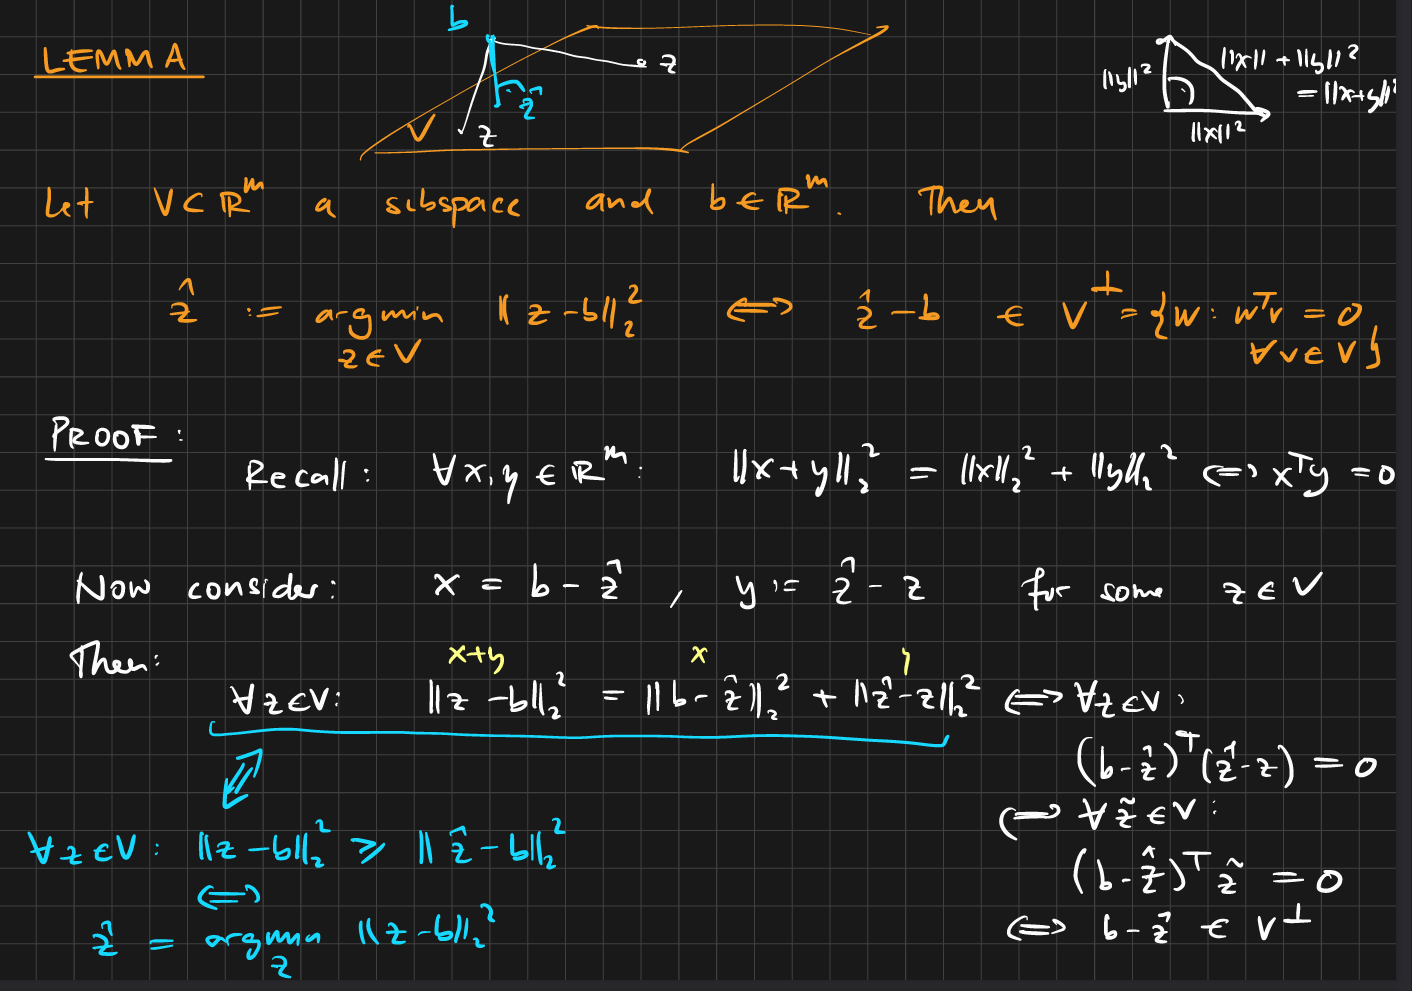 b
LEMMA
z
ẑ
V
z
||y||² ||x|| + ||y||²
= ||x+y||²
||x||²
Let V ⊂ ℝᵐ a subspace and b ∈ ℝᵐ. Then
ẑ := argmin ||z - b||₂² ⟺ ẑ - b ∈ V^⊥ = {w : wᵀv = 0
z ∈ V ∀ v ∈ V}
PROOF :
Recall : ∀ x, y ∈ ℝᵐ : ||x + y||₂² = ||x||₂² + ||y||₂² ⟺ xᵀy = 0
Now consider : x = b - ẑ , y := ẑ - z for some z ∈ V
Then :
x+y x y
∀ z ∈ V : ||z - b||₂² = ||b - ẑ||₂² + ||ẑ - z||₂² ⟺ ∀ z ∈ V :
(b - ẑ)ᵀ (ẑ - z) = 0
⟺ ∀ z̃ ∈ V :
(b - ẑ)ᵀ z̃ = 0
⟺ b - ẑ ∈ V^⊥
⟺
∀ z ∈ V : ||z - b||₂² ⩾ ||ẑ - b||₂²
⟺
ẑ = argmin ||z - b||₂²
z